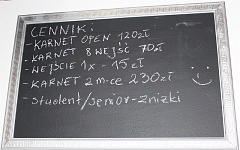 CENNIK:
- KARNET OPEN 120zł
- KARNET 8 WEJŚĆ 70zł
- WEJŚCIE 1x - 15zł
- KARNET 2 m-ce 230zł
- student/senior - zniżki